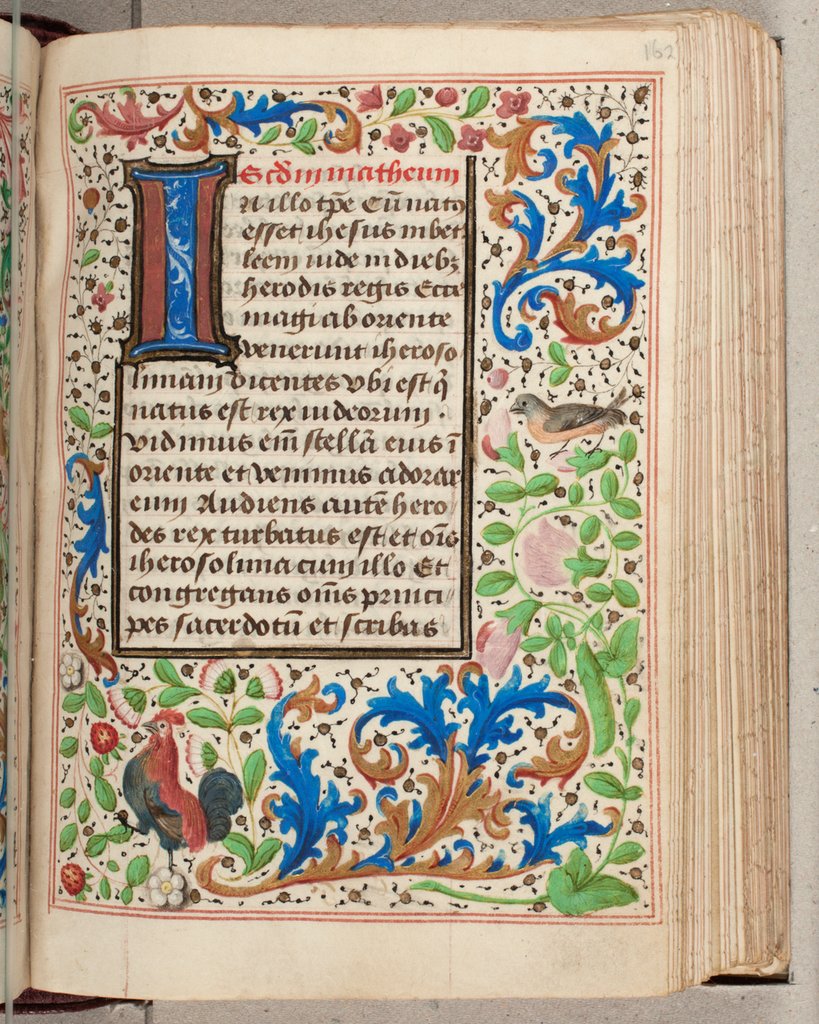 162
Scd̄m matheum
In illo tp̄e Cū natꝰ
esset ihesus in bet
leem iude in diebꝫ
herodis regis Ecce
magi ab oriente
venerunt iheroso
limam dicentes vbi est q̄
natus est rex iudeorum ·
vidimus em̄ stellā eius ī
oriente et venimus adorar
eum Audiens autē hero
des rex turbatus est et oīs
iherosolima cum illo Et
congregans om̄s princi
pes sacerdotū et scribas